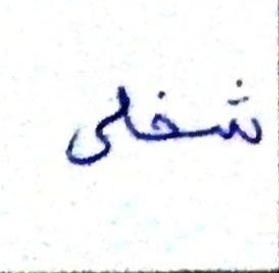 شغلی